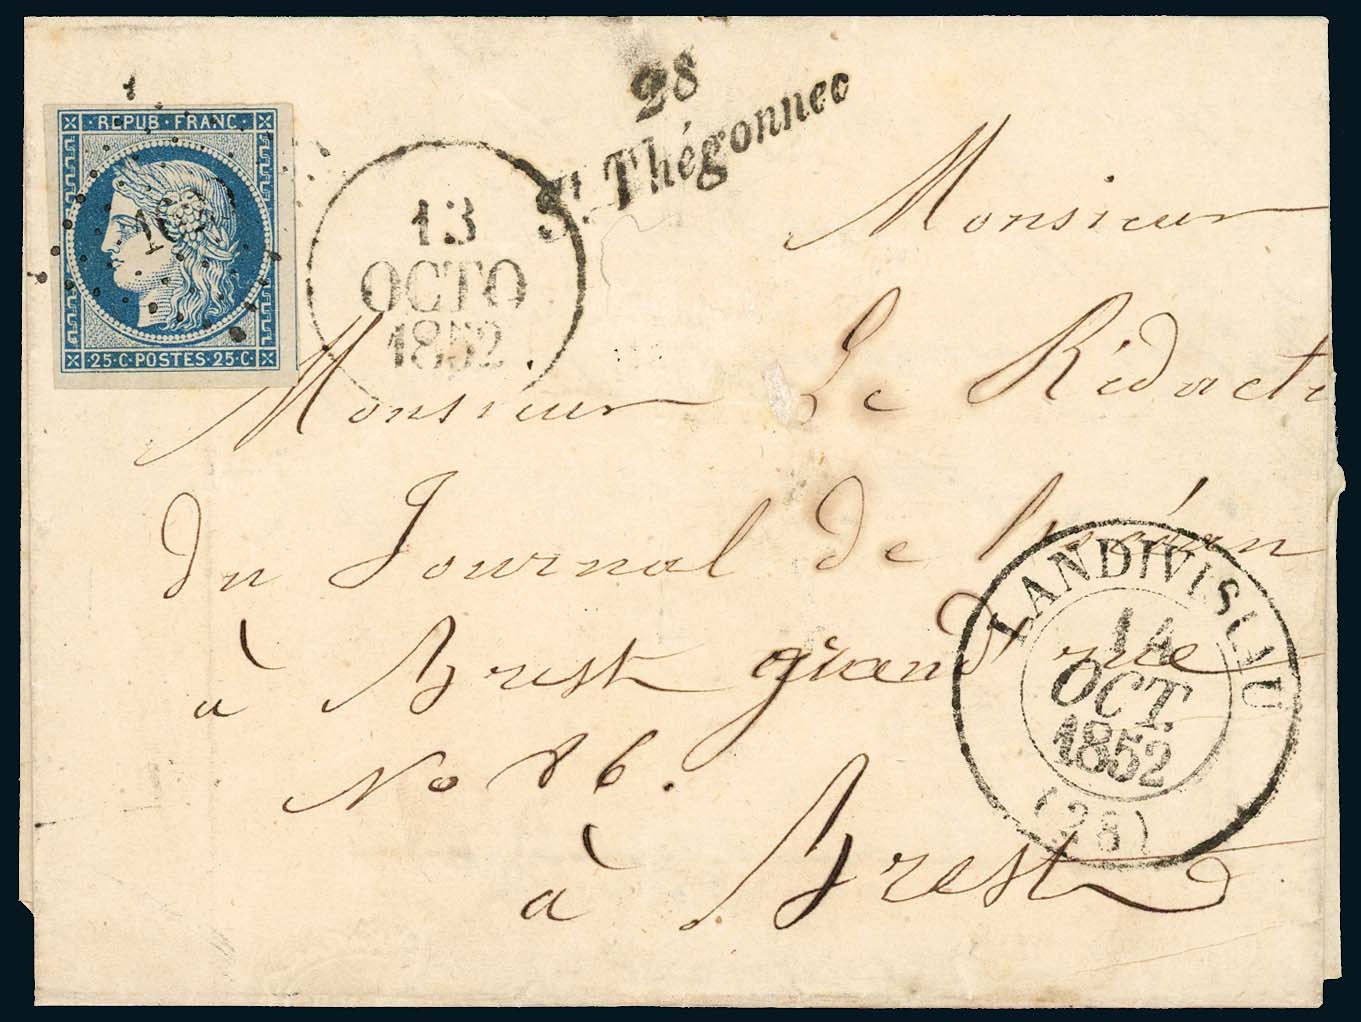 REPUB·FRANC·
25·C·POSTES·25·C·
28
St Thégonnec
13
OCTO
1852
Monsieur
Monsieur Le Rédacte
du Journal de l'océan
à Brest grand rue
No 86.
à Brest
LANDIVISIAU
14
OCT.
1852
(28)